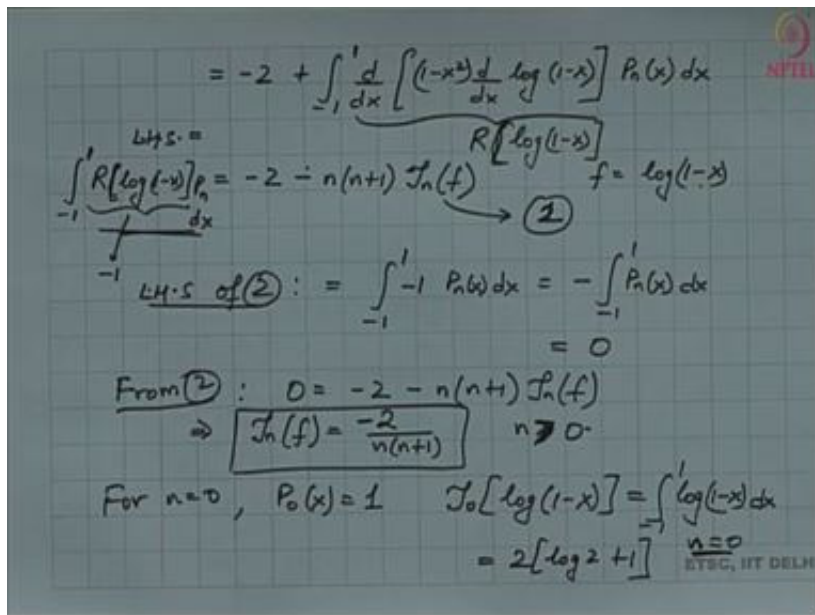 = -2 + ∫_{-1}^{1} d/dx [(1-x²) d/dx log (1-x)] Pn(x) dx
NPTEL
R[log(1-x)]
LHS. =
∫_{-1}^{1} R[log(1-x)] Pn dx = -2 - n(n+1) Jn(f)
f = log(1-x)
-1
→ ②
LH.S of ② : = ∫_{-1}^{1} -1 Pn(x) dx = - ∫_{-1}^{1} Pn(x) dx
= 0
From ② : 0 = -2 - n(n+1) Jn(f)
⇒ Jn(f) = -2/n(n+1) n > 0.
For n=0, P0(x) = 1 J0[log(1-x)] = ∫_{-1}^{1} log(1-x) dx
= 2[log 2 + 1] n=0
ETSC, IIT DELH